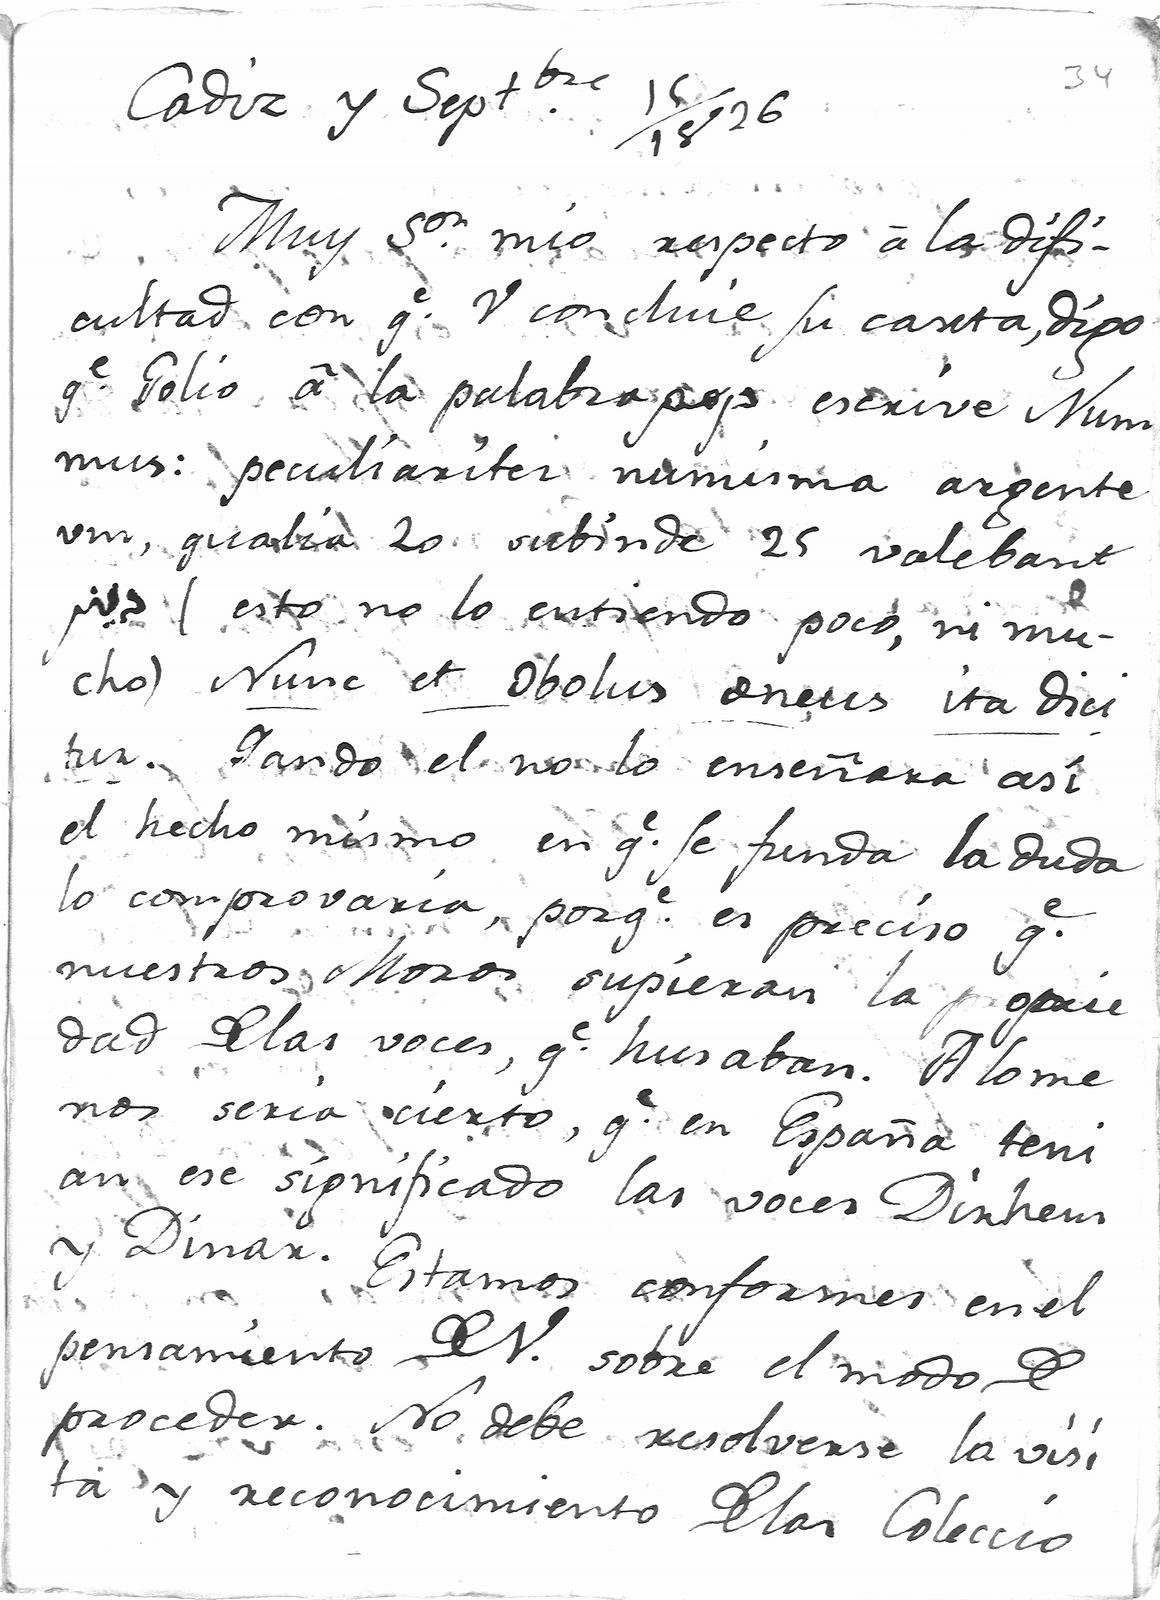 34
Cadiz y Septbre. 15/1826
Muy Sor. mio respecto à la difi-
cultad con qe. V concluie su carta, digo
qe. Golio â la palabra escrive Num
mus: peculiariter numisma argente
um, qualia 20 subinde 25 valebant
( esto no lo entiendo poco, ni mu-
cho) Nunc et Obolus æneus ita dici
tur. Quando el no lo enseñara asi
el hecho mismo en qe. se funda la duda
lo comprovaria, porqe. es preciso qe.
nuestros Moros supieran la propie
dad Delas voces, qe. husaban. A lo me
nos seria cierto, qe. en España teni
an ese significado las voces Dirhem
y Dinar. Estamos conformes en el
pensamiento De V. sobre el modo De
proceder. No debe resolverse la visi
ta y reconocimiento Delas Coleccio